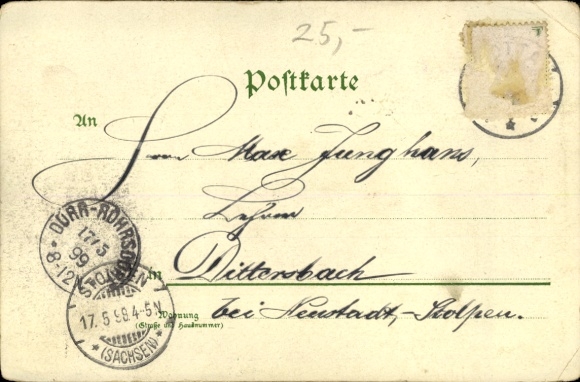 25,-
Postkarte
An
Herrn Max Junghans,
Lehrer
in Dittersbach
bei Neustadt-Stolpen.
Wohnung
(Straße und Hausnummer)
DÜRR-RÖHRSDORF
17/5
99
8-12
STOLPEN
17.5.99.4-5N
*(SACHSEN)*